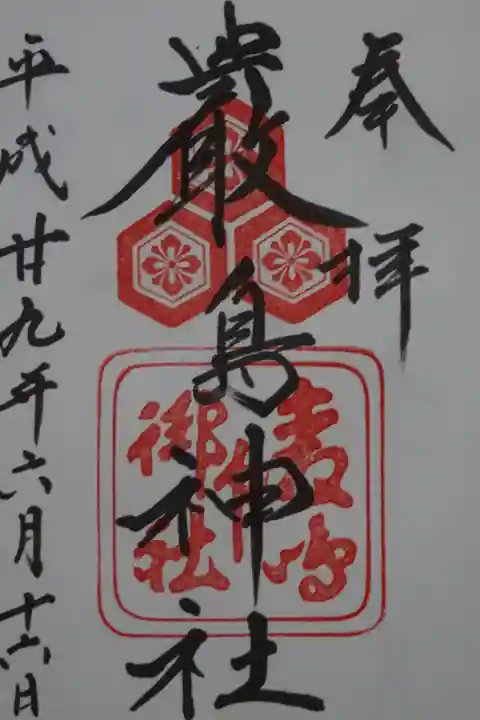 奉拝
嚴島神社
平成廿九年六月十六日
嚴島
御社